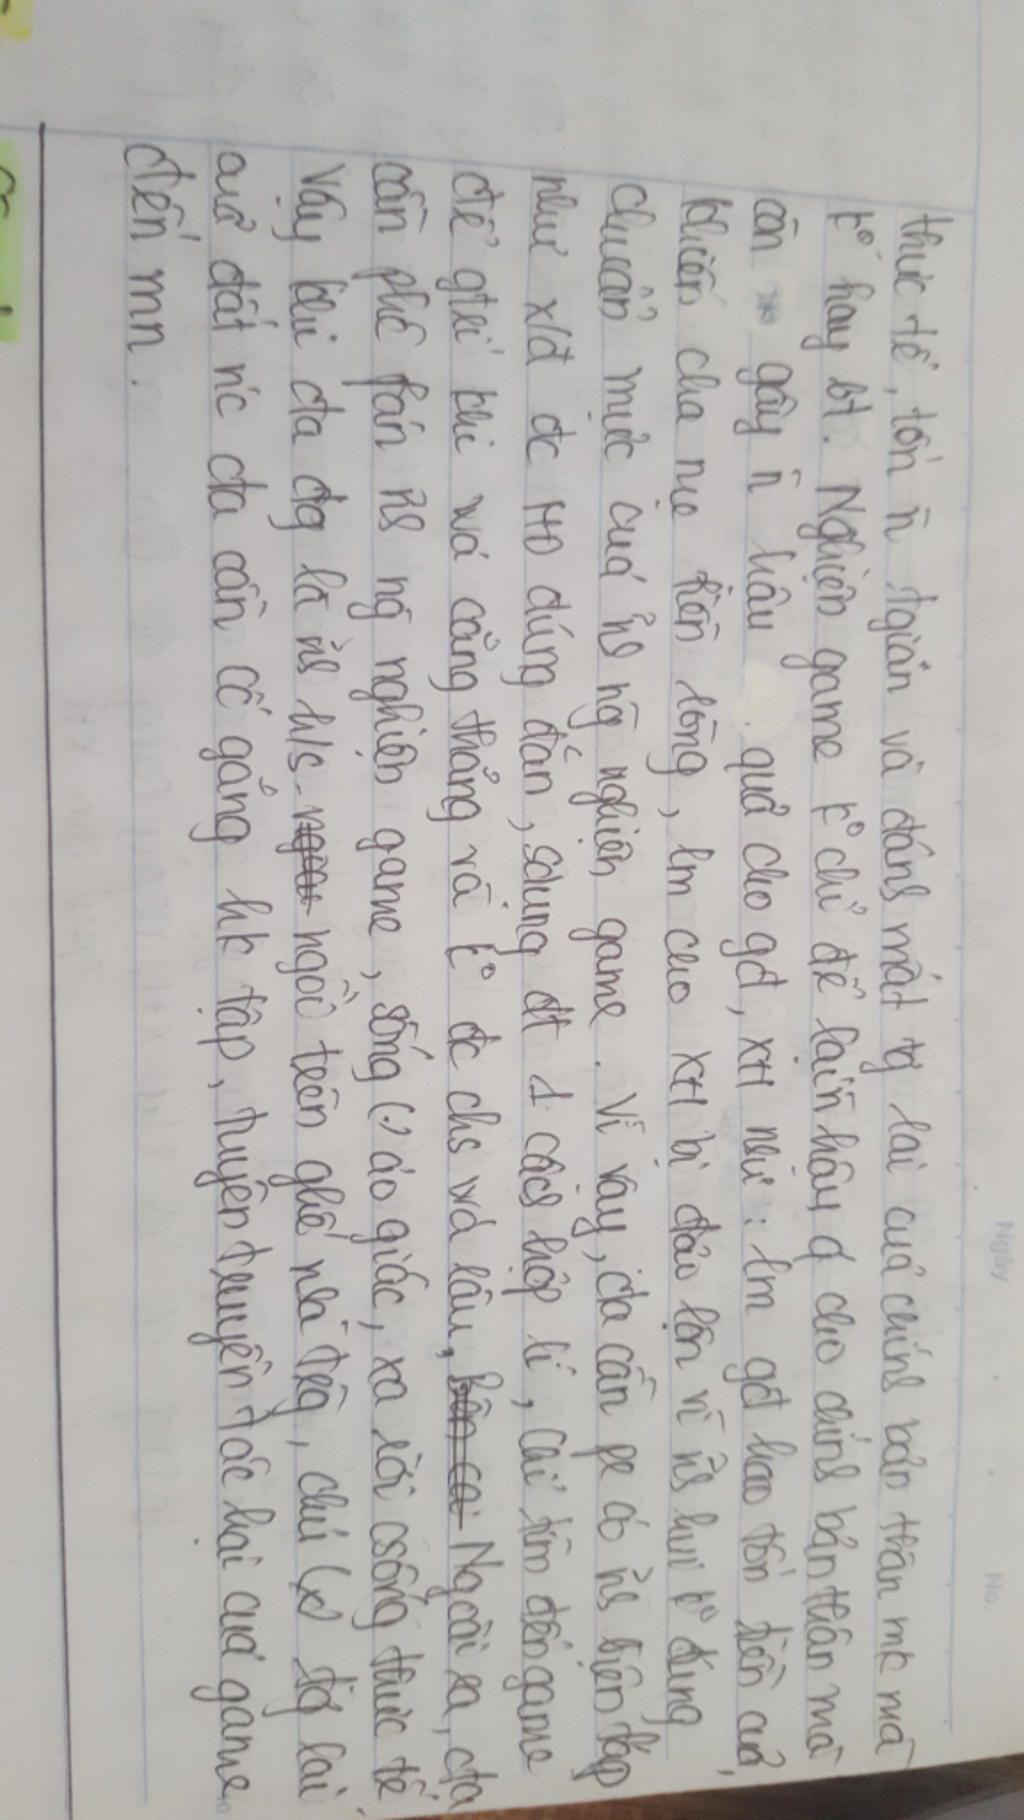 thực tế, tốn n̄ tgian và đánh mất tg lai cuả chính bản thân mk mà
k° hay bt. Nghiện game k° chỉ để lại n̄ hậu q cho chính bản thân mà
còn gây n̄ hậu quả cho gđ, XH như : lm gđ hao tốn tiền của,
khiến cha mẹ phiền lòng, lm cho XH bị đảo lộn vì n̄s hvi k° đúng
chuẩn mực cuả n̄s ng̀ nghiện game. Vì vậy, cta cần pε có n̄s biện fáp
như x/đ đc HĐ đúng đắn, sdụng đt 1 cách hợp lí, chỉ tìm đến game
để gtrí khi wá căng thẳng và k° đc chs wá lâu, Ngoài ra, cta
cần phê fán n̄s ng̀ nghiện game, sống (.) ảo giác, xa rời csống thực tế
Vậy khi cta đg là n̄s h/s ngồi trên ghế nhà trg̀, chủ tg lai
cuả đất n'c cta cần cố gắng hk tập, tuyên truyền tác hại cuả game
đến mn.
Ngày
No.